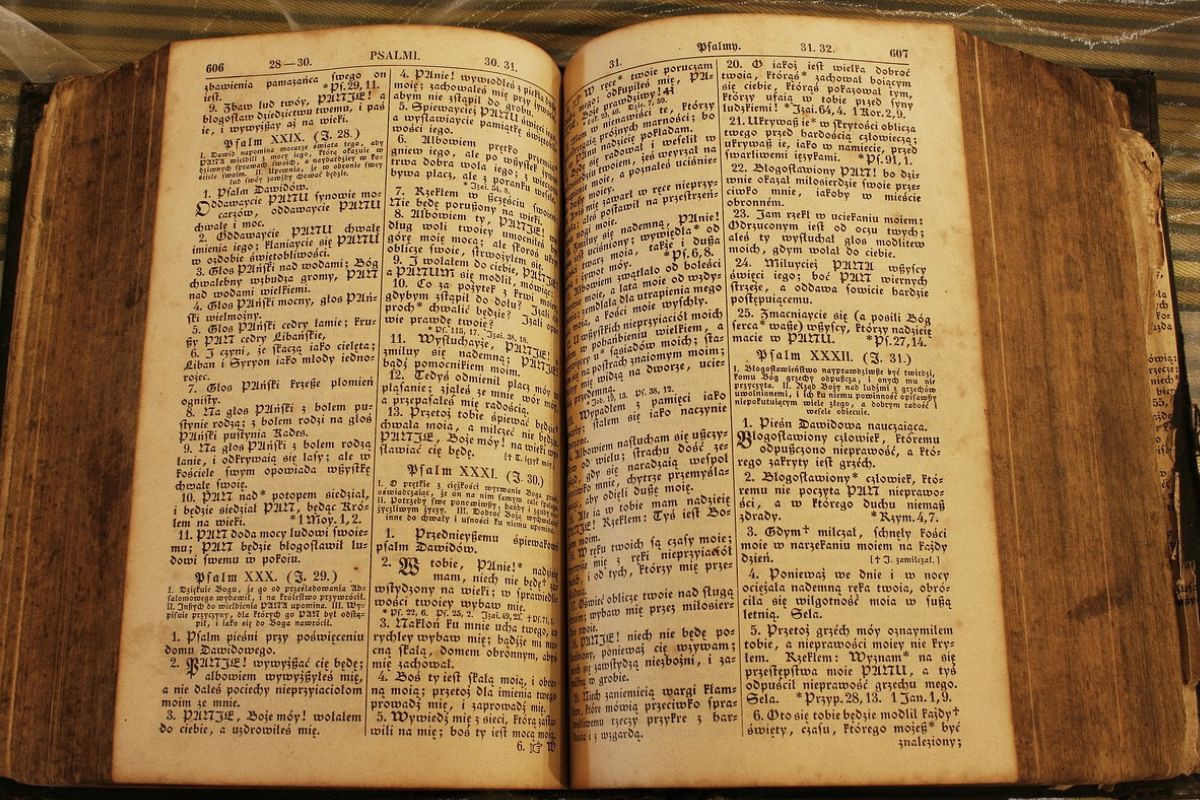 606 28—30. PSALMI. 30. 31.
zbawienia pamazańca swego on
jest. *Ps. 29, 11.
9. Zbaw lud twóy, PANJE! a
błogosław dziedzictwu twemu, i paś
ie, i wywyższay aż na wieki.
Psalm XXIX. (J. 28.)
I. Dawid napomina mocarze świata tego, aby
PANA wielbili z mocy iego, którą okazuie w
dziwnych sprawach swoich, a naybardziey w ko-
ściele swoim. II. Upewnia, że w obronie swey
lud swóy zawżdy chować będzie.
1. Psalm Dawidów.
Oddawaycie PANU synowie mo-
carzów, oddawaycie PANU
chwałę i moc.
2. Oddawaycie PANU chwałę
imienia iego; kłaniaycie się PANU
w ozdobie świętobliwości.
3. Głos PAński nad wodami; Bóg
chwalebny wzbudza gromy, PAN
nad wodami wielkiemi.
4. Głos PAński mocny, głos PAń-
ski wielmożny.
5. Głos PAński cedry łamie; kru-
szy PAN cedry Libańskie,
6. I czyni, że skaczą iako cielęta;
Liban i Syryon iako młody iedno-
rożec.
7. Głos PAński krzesze płomień
ognisty.
8. Na głos PAński z bolem pu-
stynie rodzą; z bolem rodzi na głos
PAński pustynia Kades.
9. Na głos PAński z bolem rodzą
łanie, i odkrywaią się lasy; ale w
kościele swym opowiada wszystkę
chwałę swoię.
10. PAN nad* potopem siedział,
i będzie siedział PAN, będąc Kró-
lem na wieki. *1 Moy. 1, 2.
11. PAN doda mocy ludowi swoie-
mu; PAN będzie błogosławił lu-
dowi swemu w pokoiu.
Psalm XXX. (J. 29.)
I. Dziękuie Bogu, że go od prześladowania Ab-
salomowego wybawił, i na królestwo przywrócił.
II. Innych do wielbienia PANA upomina. III. Wy-
pisuie przyczyny, dla których go PAN był odstą-
pił, i iako się do Boga nawrócił.
1. Psalm pieśni przy poświęceniu
domu Dawidowego.
2. PANJE! wywyższać cię będę;
albowiem wywyższyłeś mię,
a nie dałeś pociechy nieprzyiaciołom
moim ze mnie.
3. PANJE, Boże móy! wołałem
do ciebie, a uzdrowiłeś mię.
4. PAnie! wywiodłeś z piekła duszę
moię; zachowałeś mię przy żywocie,
abym nie zstąpił do grobu.
5. Śpiewaycież PANU święci iego,
a wysławiaycie pamiątkę świętobli-
wości iego.
6. Albowiem prętko przemiia
gniew iego, ale po wszystek żywot
trwa dobra wola iego; z wieczora
bywa płacz, ale z poranku wesele.
*Izai. 54, 8.
7. Rzekłem w szczęściu swoiem:
Nie będę poruszony na wieki.
8. Albowiem ty, PANJE! we-
dług woli twoiey umocniłeś był
górę moię mocą; ale skoroś ukrył
oblicze swoie, strwożyłem się.
9. I wołałem do ciebie, PANJE!
a PANUM się modlił, mówiąc:
10. Co za pożytek z krwi moiey,
gdybym zstąpił do dołu? Jzali cię
proch* chwalić będzie? Jzali opo-
wie prawdę twoię?
*Ps. 115, 17. Jzai. 38, 18.
11. Wysłuchayże, PANJE! a
zmiłuy się nademną; PANJE!
bądź pomocnikiem moim.
12. Tedyś odmienił płacz móy w
pląsanie; zjąłeś ze mnie wór móy,
a przepasałeś mię radością.
13. Przetoż tobie śpiewać będzie†
chwała moia, a milczeć nie będzie.
PANJE, Boże móy! na wieki wy-
sławiać cię będę.
[† J. ięzyk móy.]
Psalm XXXI. (J. 30.)
1. Przednieyszemu śpiewakowi
psalm Dawidów.
2. W tobie, PAnie!* nadzieię
mam, niech nie będę† za-
wstydzony na wieki; w sprawiedli-
wości twoiey wybaw mię.
*Ps. 22, 6. Ps. 25, 2. Jzai. 49, 23. †Ps. 71, 1.
3. Nakłoń ku mnie ucha twego, co
rychley wybaw mię; bądźże mi mo-
cną skałą, domem obronnym, abyś
mię zachował.
4. Boś ty iest skałą moią, i obro-
ną moią; przetoż dla imienia twego
prowadź mię, i zaprowadź mię.
5. Wywiedź mię z sieci, którą zasta-
wili na mię; boś ty iest mocą moią.
6. ☞ W
31. Psalmy. 31. 32. 607
W ręce* twoie poruczam
mego; odkupiłeś mię, PA-
Boże prawdziwy!
Mam w nienawiści tych, którzy
próżnych marności; bo
PANU nadzieię pokładam.
Będę się radował i weselił w
dziu twoiem, żeś weyrzał na
enie moie, a poznałeś uciśnie-
duszy moiey.
Aniś mię zawarł w ręce nieprzy-
la; aleś postawił na przestrzeń-
nogi moie.
Zmiłuy się nademną, PAnie!
iest uciśniony; wywiędła* od
twarz moia, także i dusza
i żywot móy. *Ps. 6, 8.
Albowiem zwątlało od boleści
ie moie, a lata moie od wzdy-
zemdlała dla utrapienia mego
moia, a kości moie wyschły.
U wszystkich nieprzyiaciół moich
w pohańbieniu wielkiem, a
u* sąsiadów moich; sta-
się na postrach znaiomym moim;
mię widzą na dworze, ucie-
przedemną.
*Job. 19, 13. Ps. 38, 12.
Wypadłem z pamięci iako
stałem się iako naczynie
Albowiem nasłucham się uszczy-
od wielu; strachu dość ze-
gdy się naradzaią wespół
przeciwko mnie, chytrze przemyśla-
aby odięli duszę moię.
Ale ia w tobie mam nadzieię
PANJE! Rzekłem: Tyś iest Bo-
moim.
W ręku twoich są czasy moie;
mię z ręki nieprzyiaciół
i od tych, którzy mię prze-
Oświeć oblicze twoie nad sługą
wybaw mię przez miłosier-
twoie.
PANJE! niech nie będę po-
ponieważ cię wzywam;
się zawstydzą niezbożni, i za-
w grobie.
Niech zaniemieią wargi kłam-
które mówią przeciwko spra-
wiedliwemu rzeczy przykre z har-
i z wzgardą.
20. O iakoż iest wielka dobroć
twoia, którąś* zachował boiącym
się ciebie, którąś pokazował tym,
którzy ufaią w tobie przed syny
ludzkiemi! *Jzai. 64, 4. 1 Kor. 2, 9.
21. Ukrywasz ie* w skrytości oblicza
twego przed hardością człowieczą;
ukrywasz ie, iako w namiecie, przed
swarliwemi ięzykami. *Ps. 91, 1.
22. Błogosławiony PAN! bo dzi-
wnie okazał miłosierdzie swoie prze-
ciwko mnie, iakoby w mieście
obronném.
23. Jam rzekł w uciekaniu moiem:
Odrzuconym iest od oczu twych;
aleś ty wysłuchał głos modlitew
moich, gdym wołał do ciebie.
24. Miłuycież PANA wszyscy
święci iego; boć PAN wiernych
strzeże, a oddawa sowicie hardzie
postępuiącemu.
25. Zmacniaycie się (a posili Bóg
serca* wasze) wszyscy, którzy nadzieię
macie w PANU. *Ps. 27, 14.
Psalm XXXII. (J. 31.)
I. Błogosławieństwo nayprawdziwsze być twierdzi,
komu Bóg grzechy odpuszcza, i onych mu nie
przyczyta. II. Rząd Boży nad ludźmi z grzechów
uwolnionemi, i ich ku niemu powinność opisawszy
niepokutuiącym wiele złego, a dobrym radość i
wesele obiecuie.
1. Pieśń Dawidowa nauczaiąca.
Błogosławiony człowiek, któremu
odpuszczono nieprawość, a któ-
rego zakryty iest grzéch.
2. Błogosławiony* człowiek, któ-
remu nie poczyta PAN nieprawo-
ści, a w którego duchu niemasz
zdrady. *Rzym. 4, 7.
3. Gdym† milczał, schnęły kości
moie w narzekaniu moiem na każdy
dzień. [† J. zamilczał.]
4. Ponieważ we dnie i w nocy
ociężała nademną ręka twoia, obró-
ciła się wilgotność moia w suszą
letnią. Sela.
5. Przetoż grzéch móy oznaymiłem
tobie, a nieprawości moiey nie kry-
łem. Rzekłem: Wyznam* na się
przestępstwa moie PANU, a tyś
odpuścił nieprawość grzechu mego.
Sela. *Przyp. 28, 13. 1 Jan. 1, 9.
6. Oto się tobie będzie modlił każdy†
święty, czasu, którego możesz* być
znaleziony;